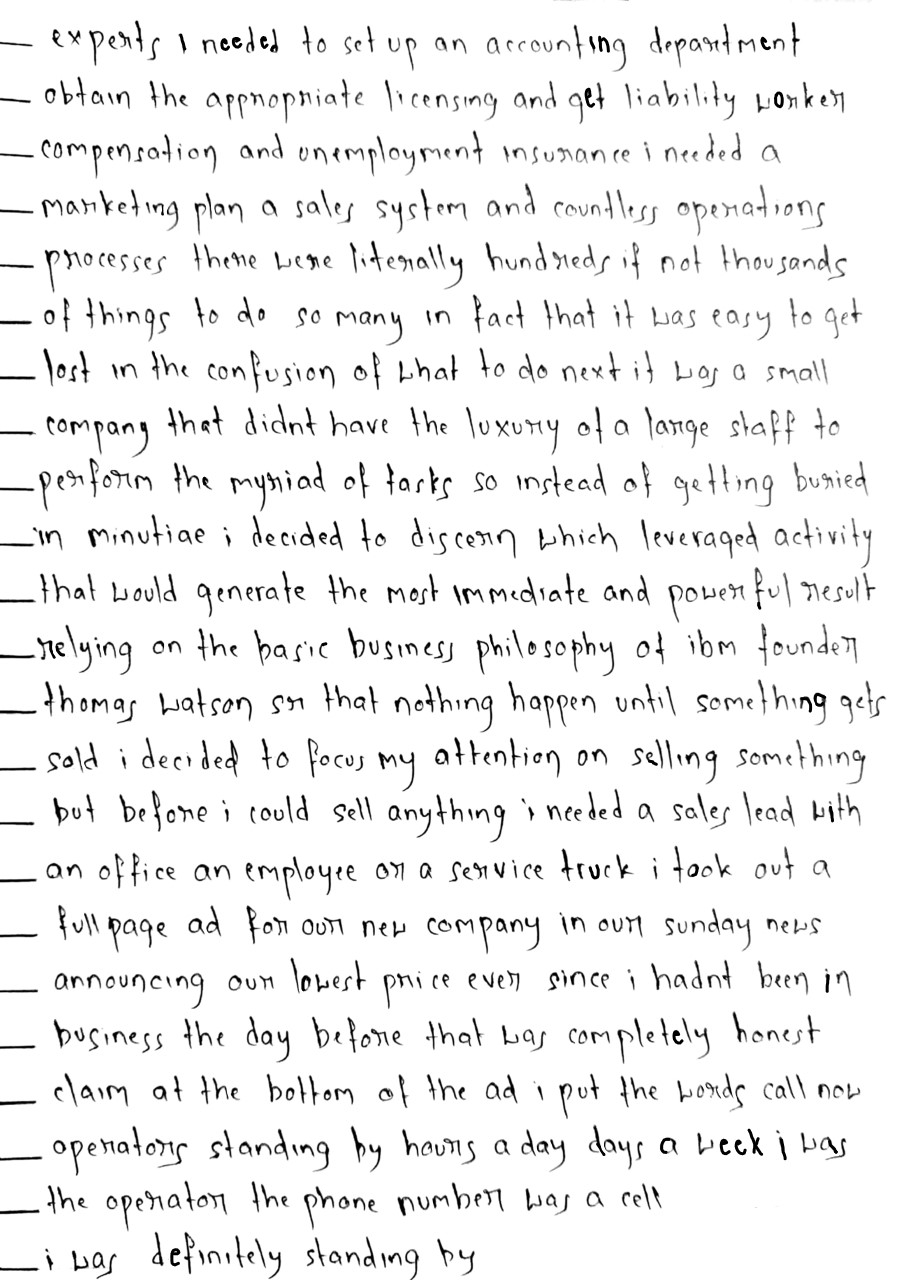 experts i needed to set up an accounting department
obtain the appropriate licensing and get liability worker
compensation and unemployment insurance i needed a
marketing plan a sales system and countless operations
processes there were literally hundreds if not thousands
of things to do so many in fact that it was easy to get
lost in the confusion of what to do next it was a small
company that didnt have the luxury of a large staff to
perform the myriad of tasks so instead of getting buried
in minutiae i decided to discern which leveraged activity
that would generate the most immediate and powerful result
relying on the basic business philosophy of ibm founder
thomas watson sr that nothing happen until something gets
sold i decided to focus my attention on selling something
but before i could sell anything i needed a sales lead with
an office an employee or a service truck i took out a
full page ad for our new company in our sunday news
announcing our lowest price ever since i hadnt been in
business the day before that was completely honest
claim at the bottom of the ad i put the words call now
operators standing by hours a day days a week i was
the operator the phone number was a cell
i was definitely standing by